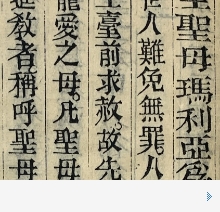 聖母瑪利亞爲
人難免無罪。人
臺前求赦。故先
寵愛之母。凡聖母
教者稱呼聖母